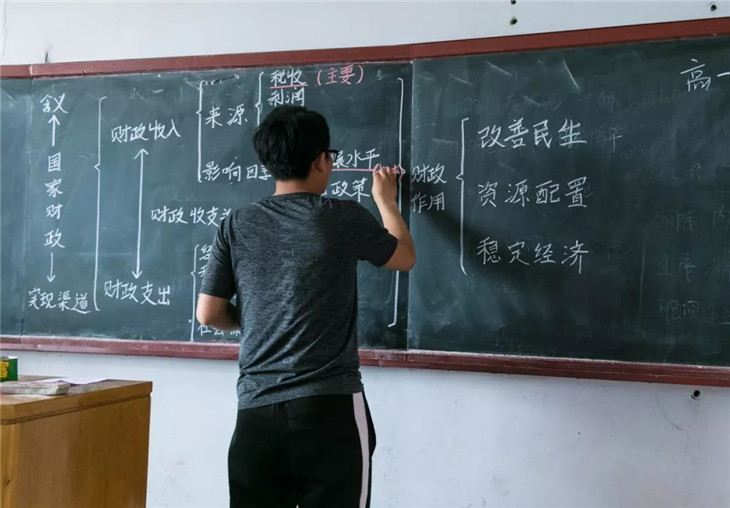 含义
国家财政
实现渠道
财政收入
财政收支
财政支出
来源
税收(主要)
利润
影响因
展水平
政策
财政
作用
改善民生
资源配置
稳定经济
高一